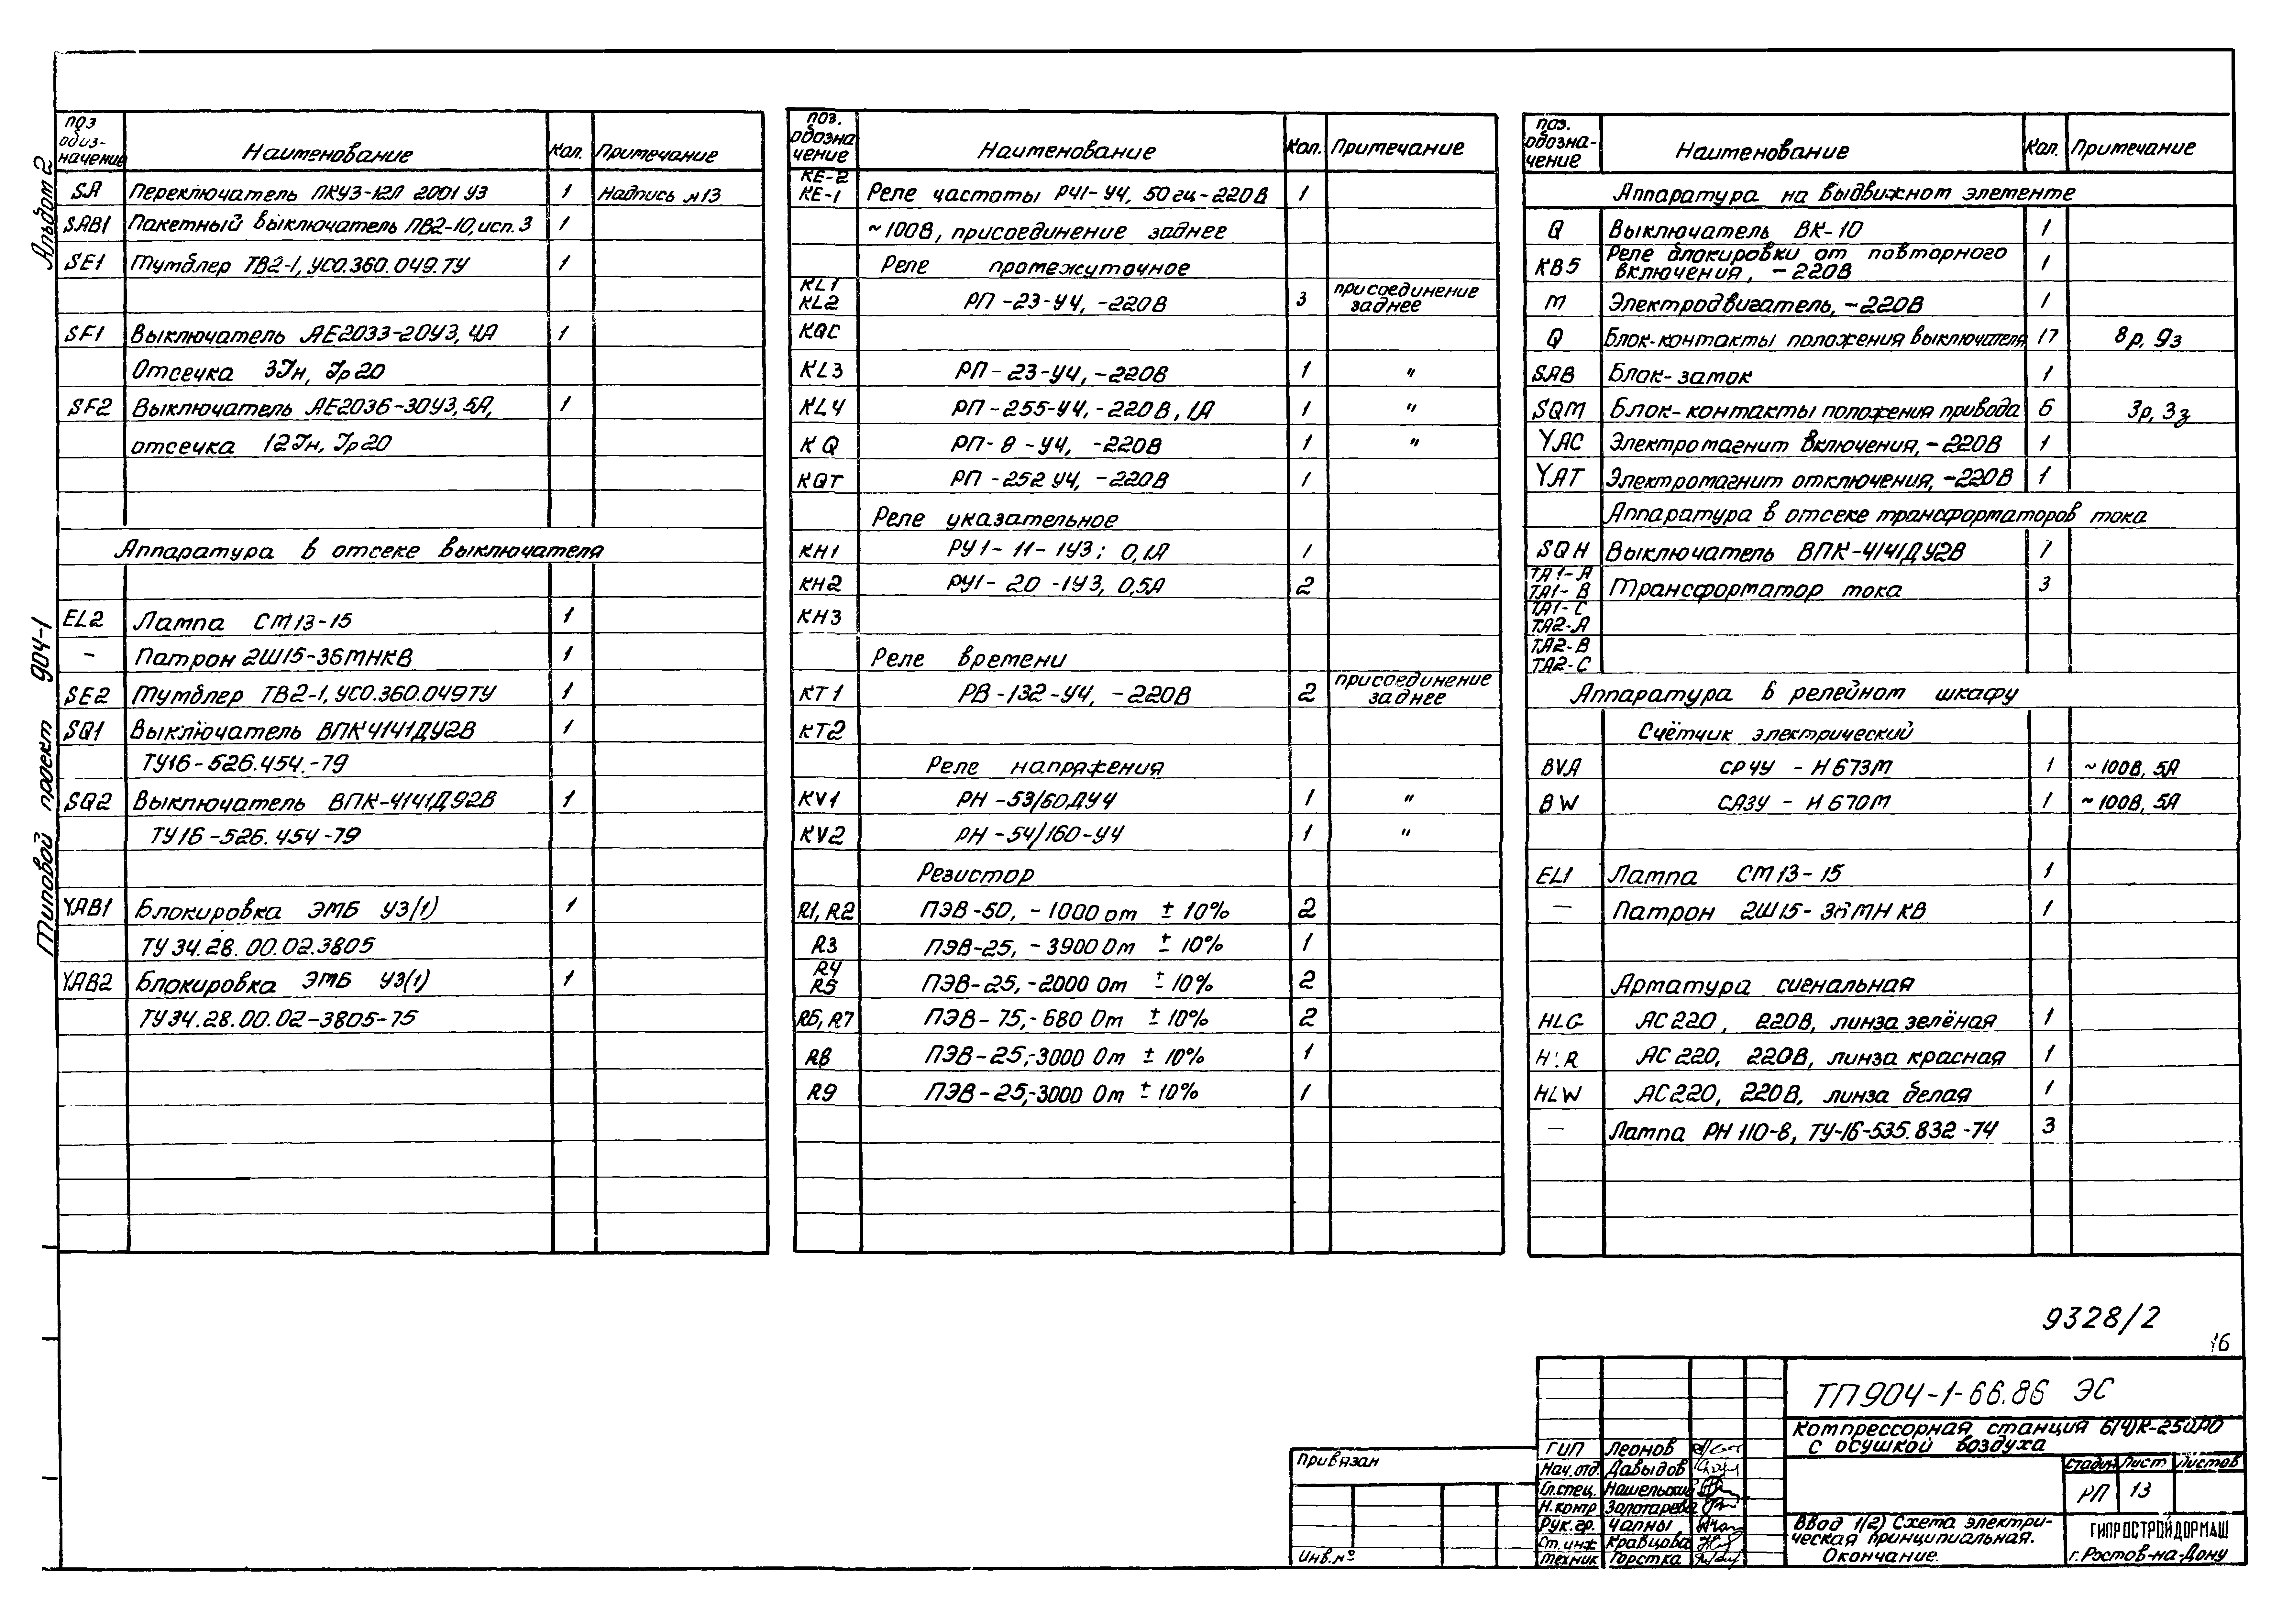 Альбом 2
Типовой проект 904-1
поз обоз- начение Наименование Кол. Примечание
SA Переключатель ПКУ3-12Л 2001 У3 1 Надпись №13
SAB1 Пакетный выключатель ПВ2-10, исп. 3 1
SE1 Тумблер ТВ2-1, УСО.360.049.ТУ 1
SF1 Выключатель АЕ2033-20У3, 4А 1
Отсечка 3Iн, Iр20
SF2 Выключатель АЕ2036-30У3, 5А, 1
отсечка 12Iн, Iр20
Аппаратура в отсеке выключателя
EL2 Лампа СМ13-15 1
– Патрон 2Ш15-36МНКВ 1
SE2 Тумблер ТВ2-1, УСО.360.049ТУ 1
SQ1 Выключатель ВПК4141ДУ2В 1
ТУ16-526.454.-79
SQ2 Выключатель ВПК-4141ДУ2В 1
ТУ16-526.454-79
YAB1 Блокировка ЭМБ У3(1) 1
ТУ34.28.00.02.3805
YAB2 Блокировка ЭМБ У3(1) 1
ТУ34.28.00.02-3805-75
поз. обозна чение Наименование Кол. Примечание
KE-2
KE-1 Реле частоты РЧ1-У4, 50гц-220В 1
~100В, присоединение заднее
Реле промежуточное
KL1
KL2 РП-23-У4, -220В 3 присоединение заднее
KQC
KL3 РП-23-У4, -220В 1 "
KL4 РП-255-У4, -220В, 1А 1 "
KQ РП-8-У4, -220В 1 "
KQT РП-252 У4, -220В 1
Реле указательное
KH1 РУ1-11-1У3; 0,1А 1
KH2 РУ1-20-1У3, 0,5А 2
KH3
Реле времени
KT1 РВ-132-У4, -220В 2 присоединение заднее
KT2
Реле напряжения
KV1 РН-53/60ДУ4 1 "
KV2 РН-54/160-У4 1 "
Резистор
R1, R2 ПЭВ-50, -1000 ом ± 10% 2
R3 ПЭВ-25, -3900 Ом ± 10% 1
R4
R5 ПЭВ-25, -2000 Ом ± 10% 2
R6, R7 ПЭВ-75, -680 Ом ± 10% 2
R8 ПЭВ-25,-3000 Ом ± 10% 1
R9 ПЭВ-25,-3000 Ом ± 10% 1
поз. обозна- чение Наименование Кол. Примечание
Аппаратура на выдвижном элементе
Q Выключатель ВК-10 1
KB5 Реле блокировки от повторного
включения, -220В 1
M Электродвигатель, -220В 1
Q Блок-контакты положения выключателя 17 8р, 9з
SAB Блок-замок 1
SQM Блок-контакты положения привода 6 3р, 3з
YAC Электромагнит включения, -220В 1
YAT Электромагнит отключения, -220В 1
Аппаратура в отсеке трансформаторов тока
SQH Выключатель ВПК-4141ДУ2В 1
TA1-A
TA1-B Трансформатор тока 3
TA1-C
TA2-A
TA2-B
TA2-C
Аппаратура в релейном шкафу
Счётчик электрический
BVA СР4У-И673М 1 ~100В, 5А
BW СА3У-И670М 1 ~100В, 5А
EL1 Лампа СМ13-15 1
– Патрон 2Ш15-36МНКВ 1
Арматура сигнальная
HLG АС220, 220В, линза зелёная 1
HLR АС220, 220В, линза красная 1
HLW АС220, 220В, линза белая 1
– Лампа РН110-8, ТУ-16-535.832-74 3
9328/2
16
ТП904-1-66.86 ЭС
Компрессорная станция 6(4)К-250АО
с осушкой воздуха
Стадия Лист Листов
РП 13
Ввод 1(2) Схема электри-
ческая принципиальная.
Окончание.
ГИПРОСТРОЙДОРМАШ
г. Ростов-на-Дону
ГИП Леонов
Нач.отд. Давыдов
Гл.спец. Нашельский
Н.контр Золотарева
Рук.гр. Чапны
Ст.инж Кравцова
техник Горстка
Привязан
Инв.№